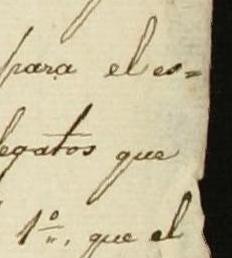 para el es=
legatos que
1º, que el